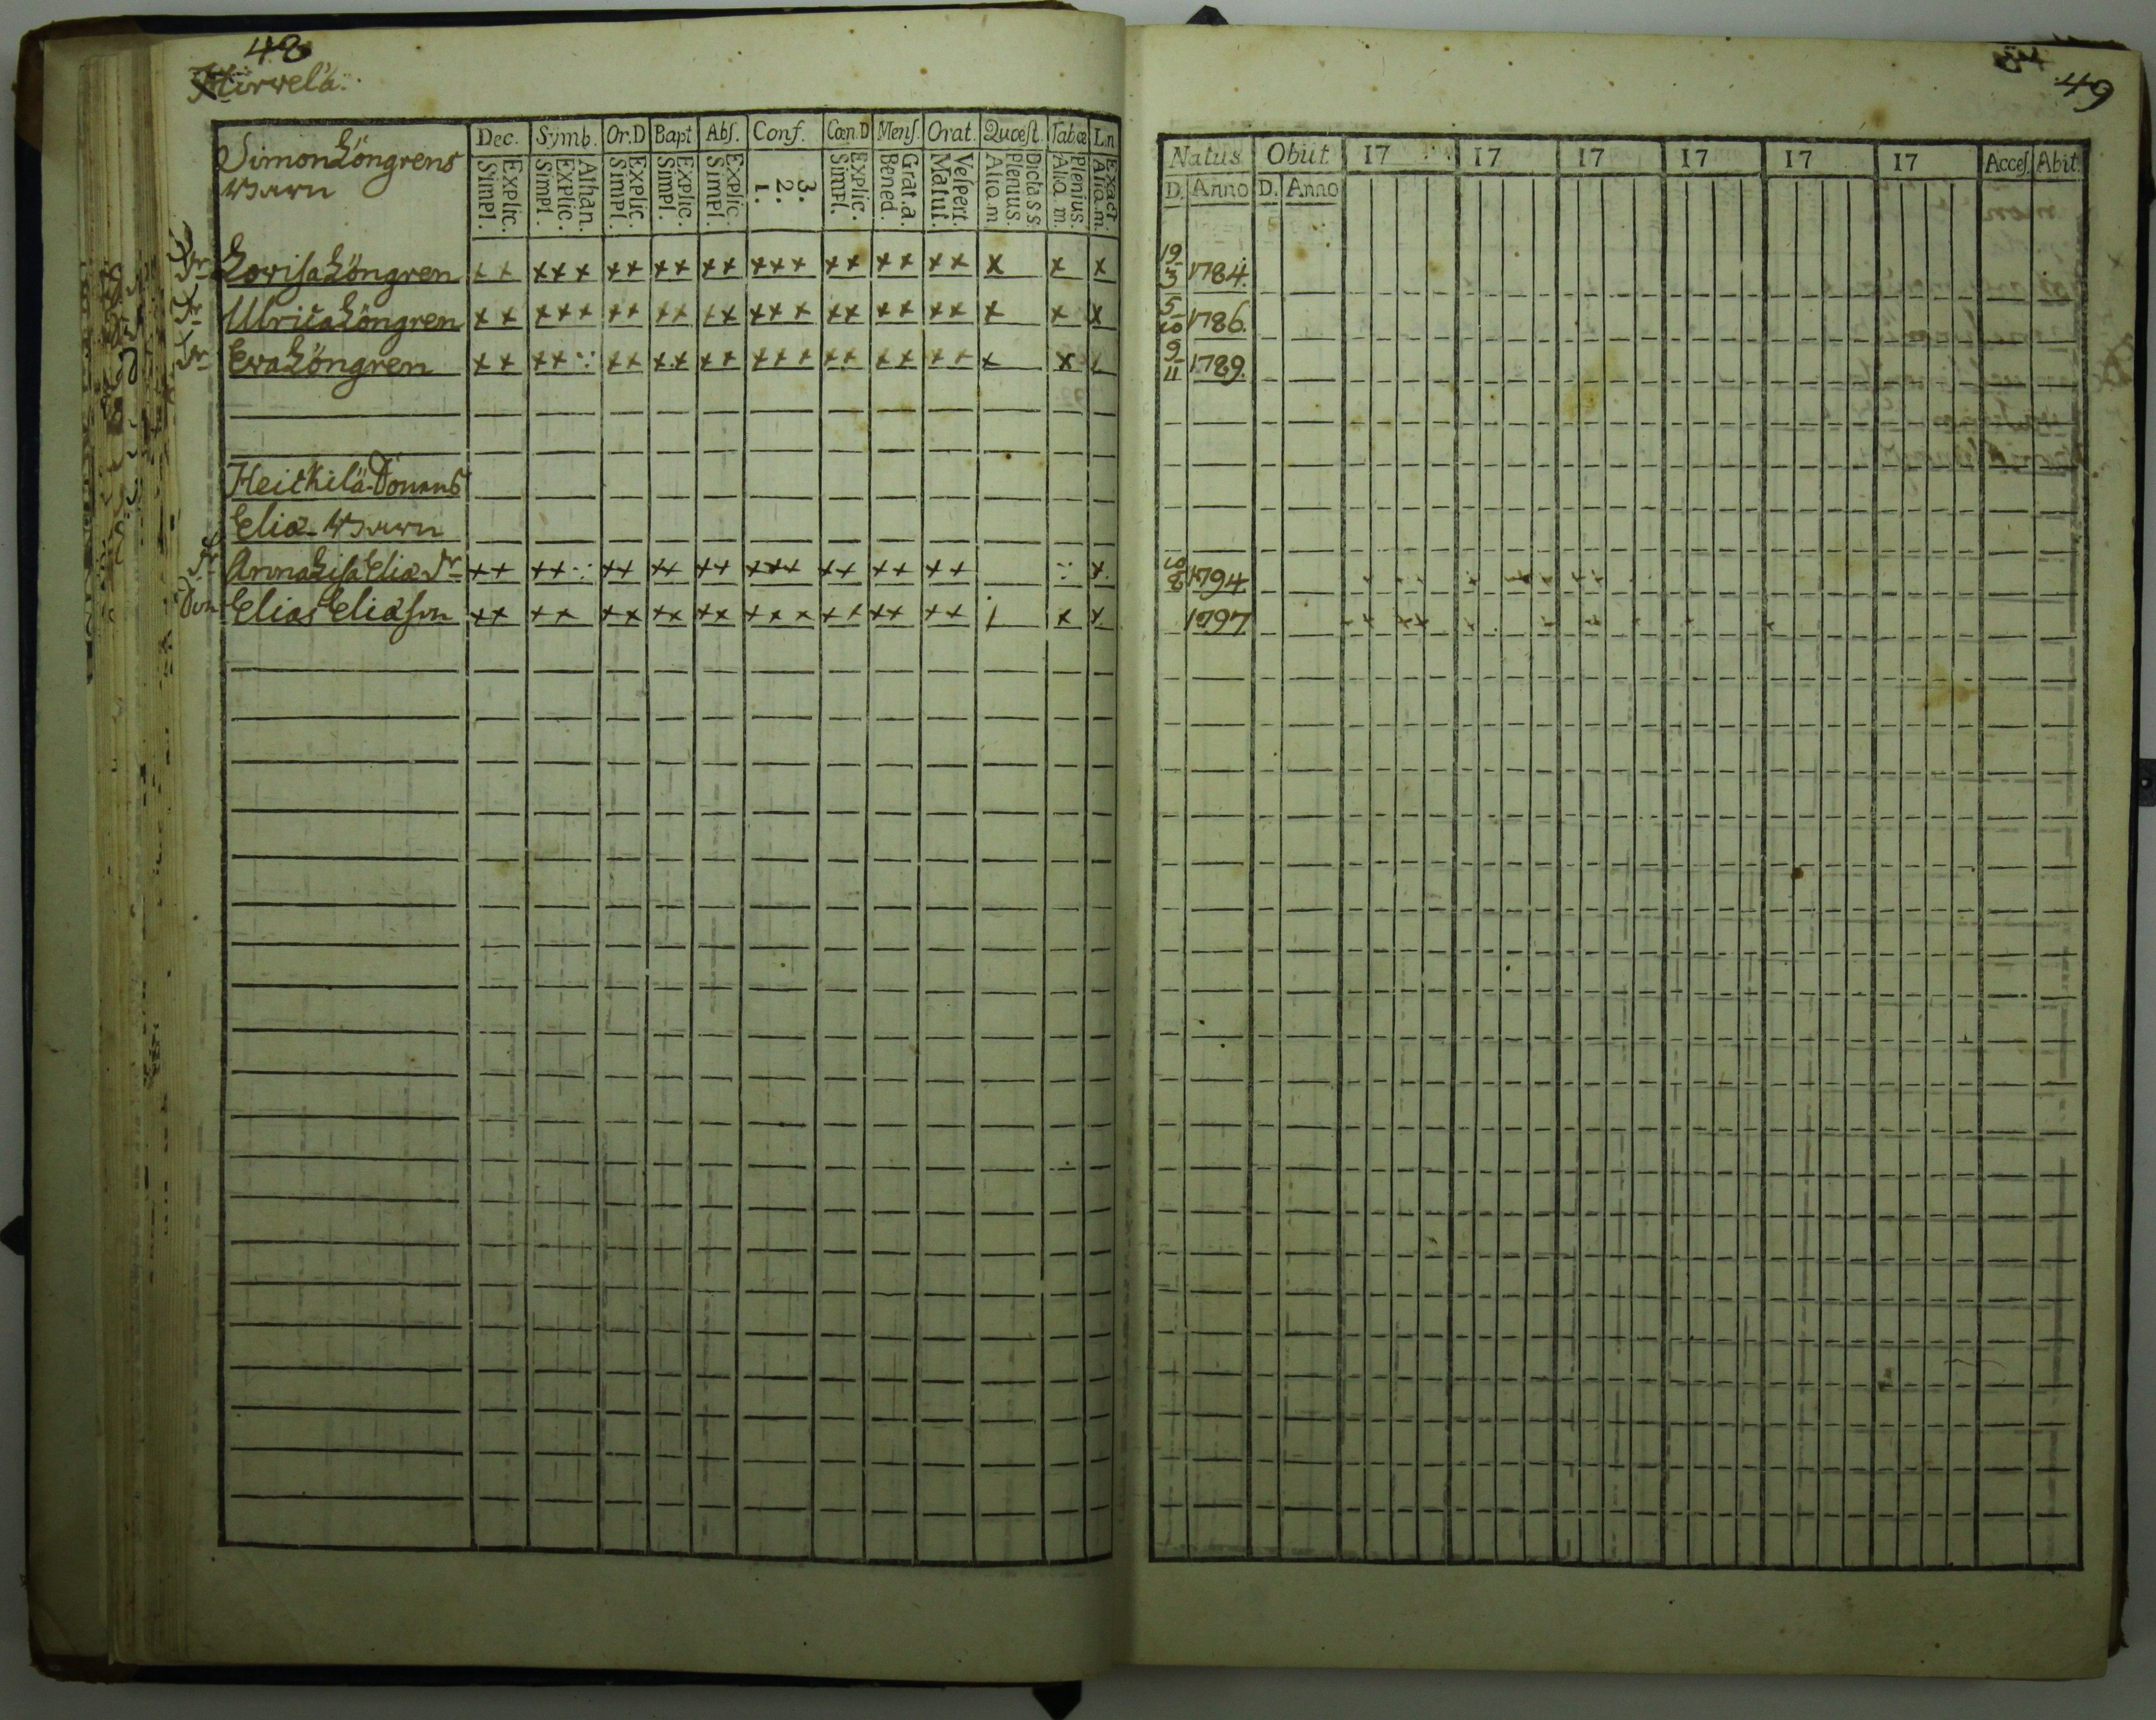 48
Hirvelä.
Simon Löngrens
Barn
Dec. Symb. Or.D Bapt Abſ. Conf. Cœn.D Menſ. Orat. Quœſt. Tabœ L.n
Explic. Simpl. Athan. Explic. Simpl. Explic. Simpl. Explic. Simpl. Explic. Simpl. 3. 2. 1. Explic. Simpl. Grat.a. Bened. Veſpert. Matut. Dicta s s. Plenius. Aliq.m Plenius. Aliq.m. Exact Aliq.m.
Dr Lovisa Löngren x x x x x x x x x x x x x x x x x x x x x x x
Dr Ulrica Löngren x x x x x x x x x x x x x x x x x x x x x x x
Dr Eva Löngren x x x x : x x x x x x x x x x x x x x x x x x
Heickilä Sonens
Eliæ Barn
Dr Anna Lisa Eliæ Dr x x x x : x x x x x x x x x x x x x x x : x
Son Elias Eliæson x x x x x x x x x x x x x x x x x x x / x x
49
Natus Obiit 17 17 17 17 17 17 Acceſ. Abit.
D. Anno D. Anno
19/3 1784.
5/10 1786.
9/11 1789.
10/8 1794
1797